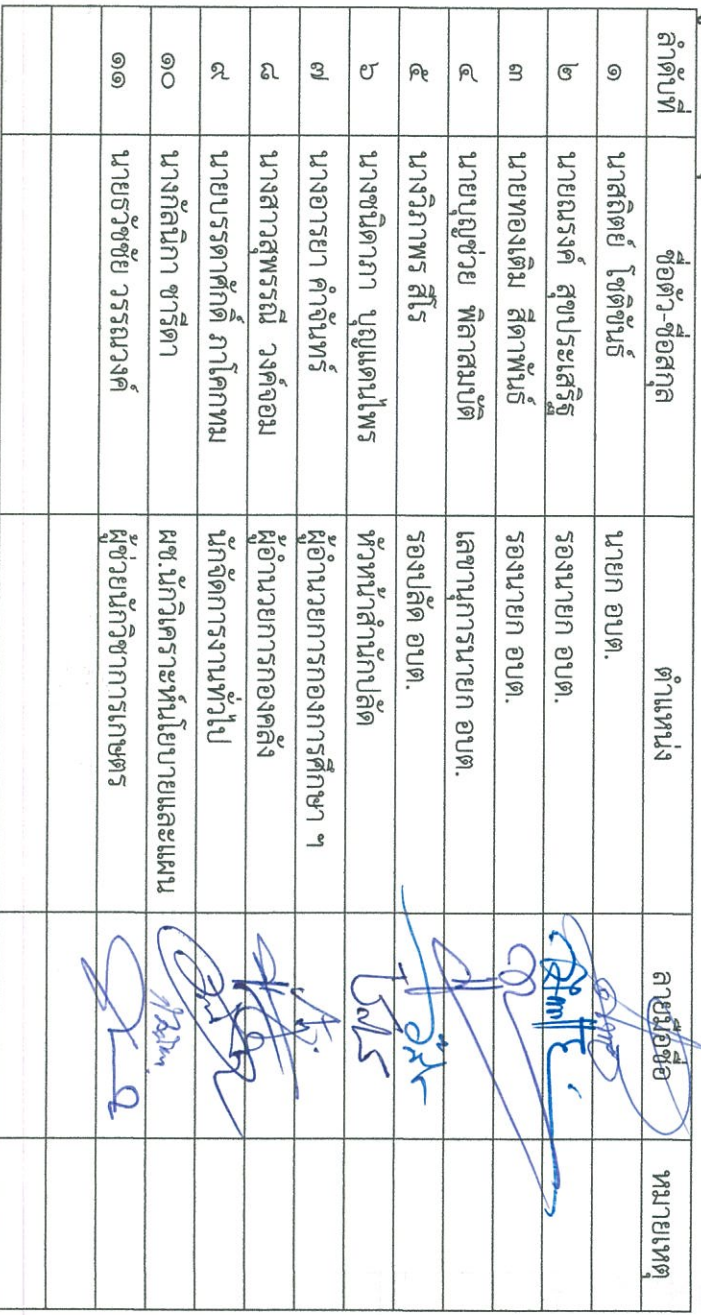 ลำดับที่ ชื่อตัว-ชื่อสกุล ตำแหน่ง ลายมือชื่อ หมายเหตุ
๑ นาสถิตย์ โชติขันธ์ นายก อบต.
๒ นายณรงค์ สุขประเสริฐ รองนายก อบต.
๓ นายทองเติม สีดาพันธ์ รองนายก อบต.
๔ นายบุญช่วย พิลาสมบัติ เลขานุการนายก อบต.
๕ นางวิภาพร สีโร รองปลัด อบต.
๖ นางชนิดาภา บุญแดนไพร หัวหน้าสำนักปลัด
๗ นางอารยา คำจันทร์ ผู้อำนวยการกองการศึกษา ฯ
๘ นางสาวสุพรรณี วงค์จอม ผู้อำนวยการกองคลัง
๙ นายบรรดาศักดิ์ ภาโคกทม นักจัดการงานทั่วไป
๑๐ นางกัลนิกา ชารีดา ผช.นักวิเคราะห์นโยบายและแผน
๑๑ นายธวัชชัย วรรณวงค์ ผู้ช่วยนักวิชาการเกษตร